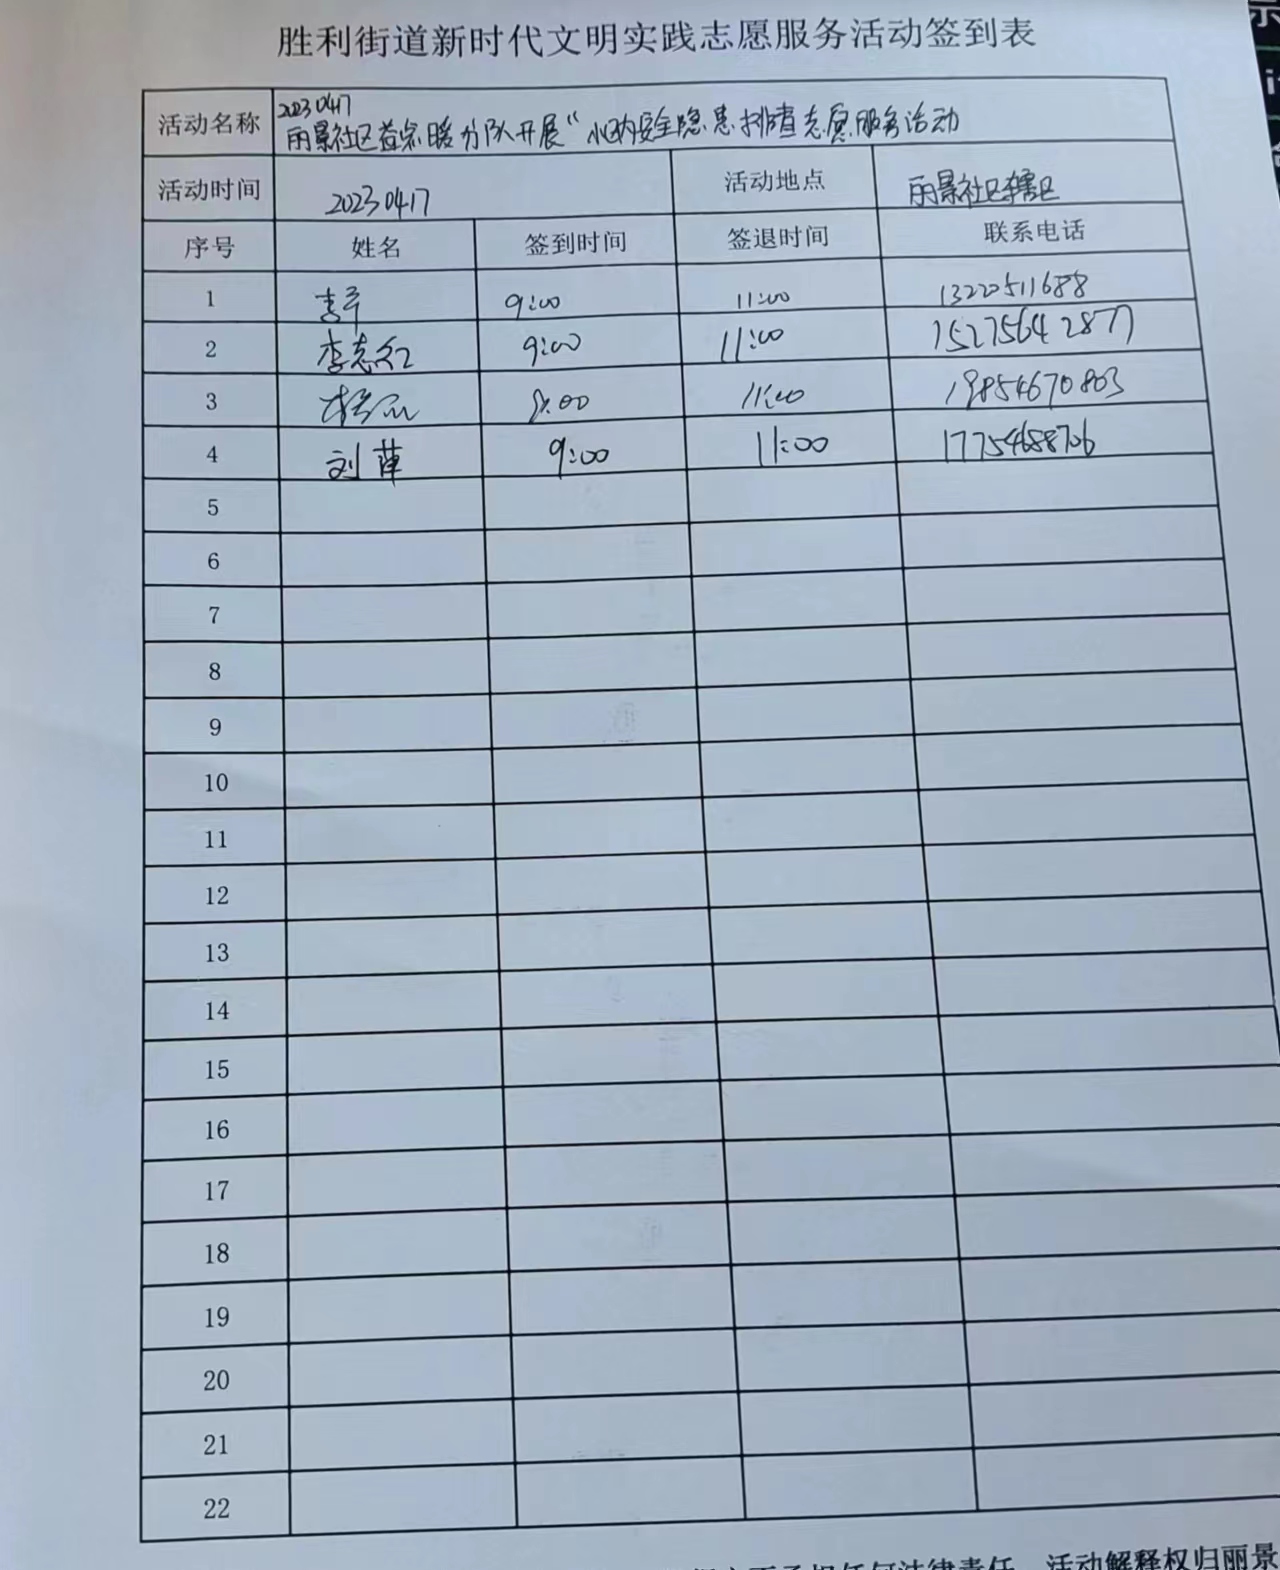 胜利街道新时代文明实践志愿服务活动签到表
活动名称 20230417
丽景社区 暖分队开展“ 安全隐患排查志愿服务活动
活动时间 20230417 活动地点 丽景社区辖区
序号 姓名 签到时间 签退时间 联系电话
1 李平 9:00 11:00 13220511688
2 李志红 9:00 11:00 15275642877
3 9:00 11:00 19854670803
4 刘萍 9:00 11:00 17754688706
5
6
7
8
9
10
11
12
13
14
15
16
17
18
19
20
21
22
法律责任，活动解释权归丽景